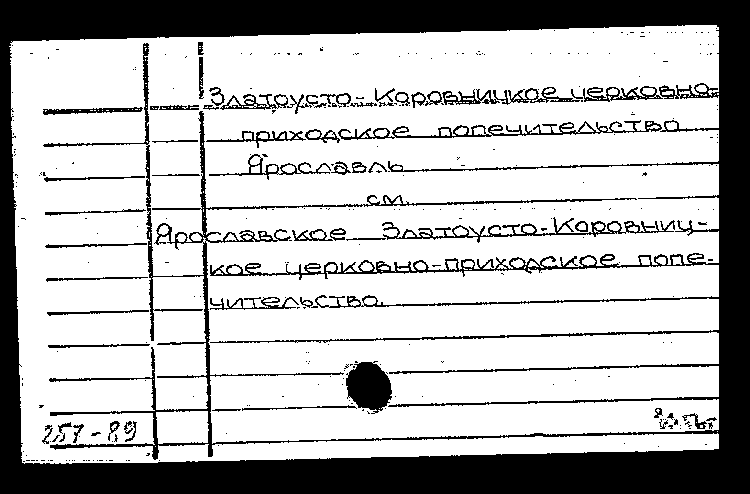 Златоусто-Коровницкое церковно-
приходское попечительство
Ярославль
см.
Ярославское Златоусто-Коровниц-
кое церковно-приходское попе-
чительство.
257-89